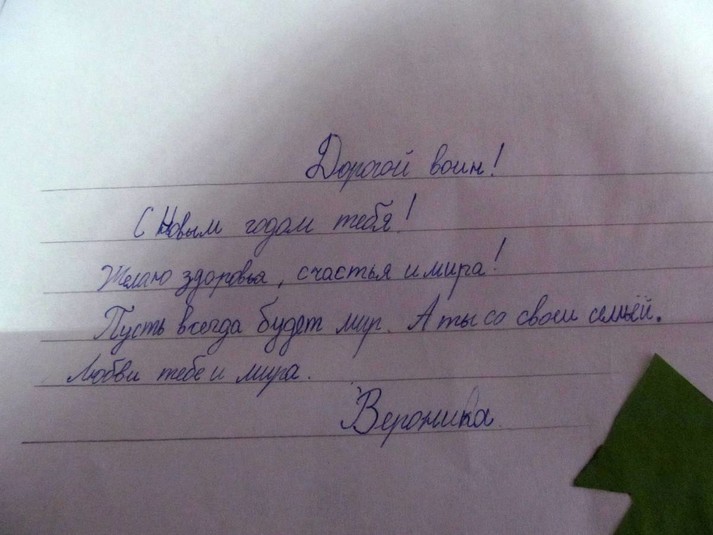 Дорогой воин!
С Новым годом тебя!
Желаю здоровья, счастья и мира!
Пусть всегда будет мир. А ты со своей семьёй.
Любви тебе и мира.
Вероника.